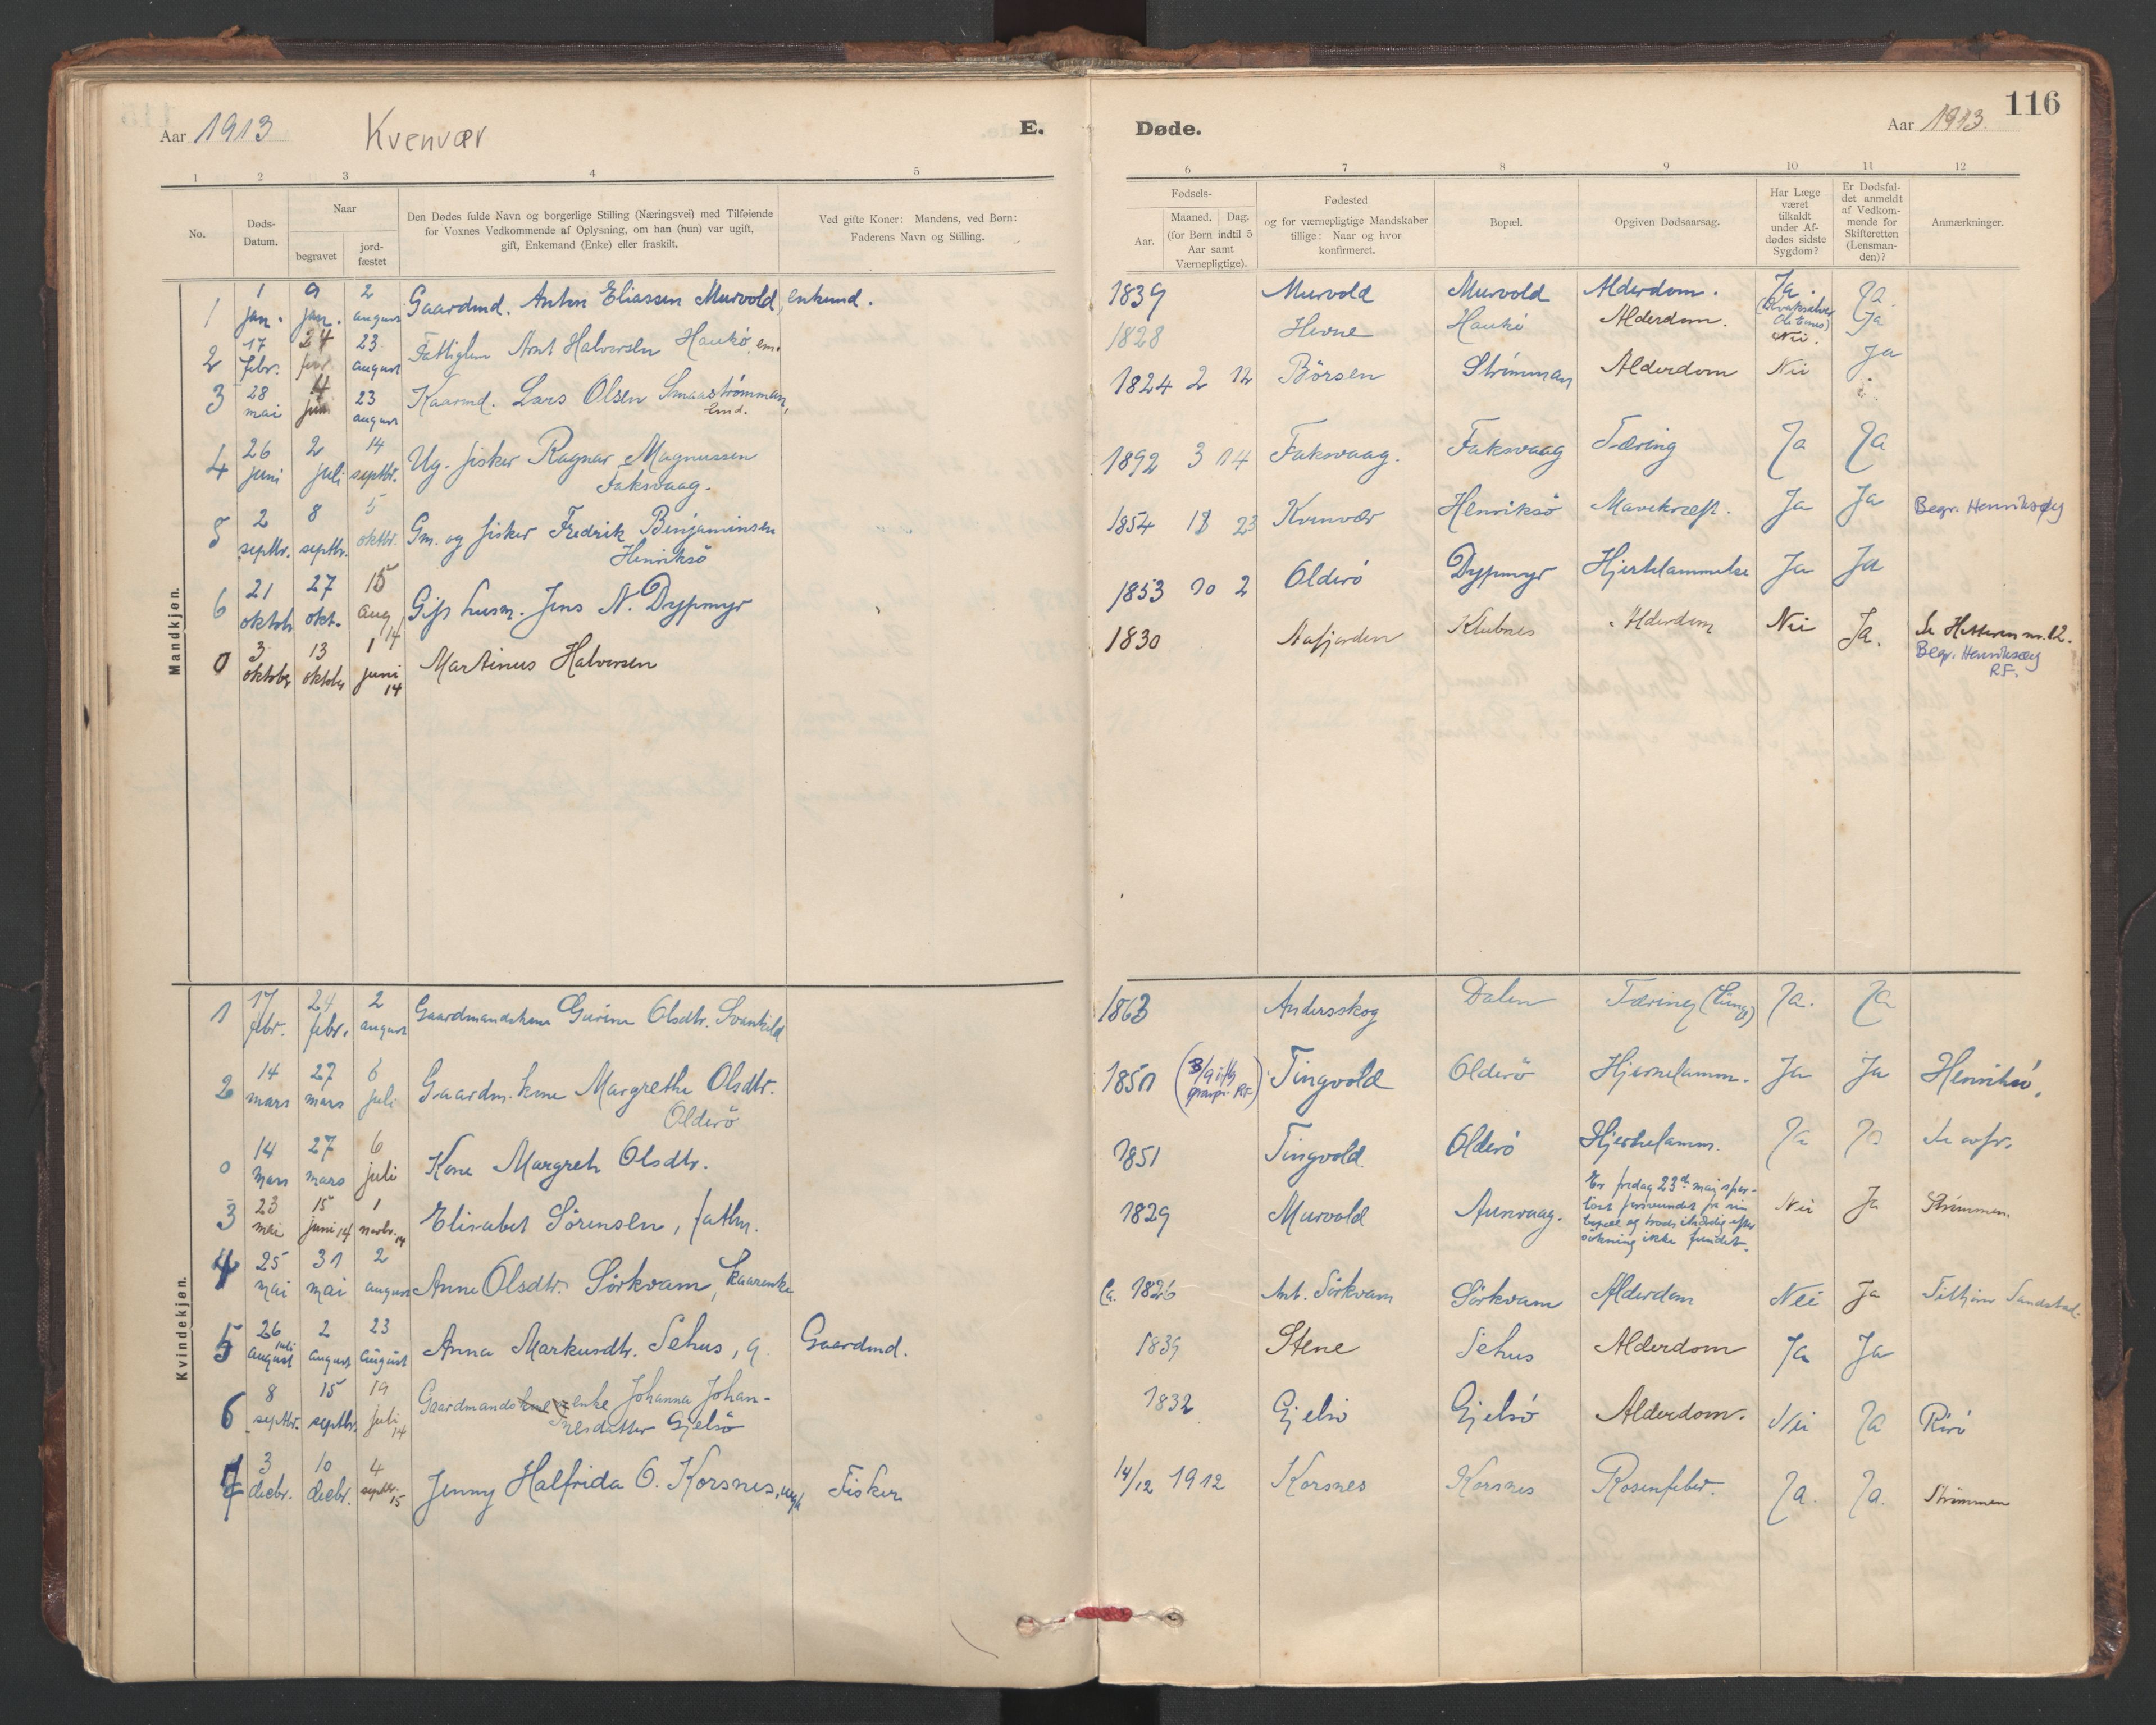 116
Aar 1913 Kvenvær E. Døde. Aar 1913.
1 2 3 4 5 6 7 8 9 10 11 12
No.
Døds-
Datum.
Naar
begravet
jord-
fæstet
Den Dødes fulde Navn og borgerlige Stilling (Næringsvei) med Tilføiende
for Voxnes Vedkommende af Oplysning, om han (hun) var ugift,
gift, Enkemand (Enke) eller fraskilt.
Ved gifte Koner: Mandens, ved Børn:
Faderens Navn og Stilling.
Fødsels-
Aar.
Maaned. Dag.
(for Børn indtil 5
Aar samt
Værnepligtige).
Fødested
og for værnepligtige Mandskaber
tillige: Naar og hvor
konfirmeret.
Bopæl.
Opgiven Dødsaarsag.
Har Læge
været
tilkaldt
under Af-
dødes sidste
Sygdom?
Er Dødsfal-
det anmeldt
af Vedkom-
mende for
Skifteretten
(Lensman-
den)?
Anmærkninger.
Mandkjøn.
1 1 jan. 9 jan. 2 august Gaardmd. Anton Eliassen Murvold, enkemd. 1839 Murvold Murvold Alderdom. Ja. Ja.
2 17 febr. 24 febr. 23 august Fattiglem Arnt Halvorsen Haukø, em. 1828 Hevne Haukö Alderdom. Nei. Ja
3 28 mai 4 juni 23 august Kaarmd. Lars Olsen Smaastrømman, 1824 2 12 Börsen Strömman Alderdom Nei Ja
emd.
4 26 juni 2 juli 14 septbr. Ug. fisker Ragnar Magnussen 1892 3 14 Faksvaag. Faksvaag Tæring Ja Ja
Faksvaag.
5 2 septbr. 8 septbr. 5 oktbr. Gm. og fisker Fredrik Benjaminsen 1854 23 Kvenvær Henriksö Mavekræft. Ja Ja Begr. Henriksøy
Henriksö
6 21 oktob 27 okt. 15 aug 14 Gift husm. Jens N. Dypmyr 1853 10 2 Olderö Dypmyr Hjertelammelse Ja Ja
0 3 oktober 13 oktober 1 juni 14 Martinus Halvorsen 1830 Aafjorden Klubnes Alderdom Nei Ja. Se Hitteren nr. 12.
Begr. Henriksøy
RF.
Kvindekjøn.
1 17 febr. 24 febr. 2 august Gaardmandskone Gurine Olsdtr. Svankild 1863 Andersskog Dalen Tæring (Lunge) Ja. Ja
2 14 mars 27 mars 6 juli Gaardm. kone Margrethe Olsdtr. 1851 Tingvold Olderö Hjernelamm. Ja Ja Henriksö,
Olderö
0 14 mars 27 mars 6 juli Kone Margreth Olsdtr. 1851 Tingvold Olderö Hjertelamm. Ja Ja Se ovfr.
3 23 mai 15 juni 14 1 novbr. 14 Elisabet Sörensen, fatlm. 1829 Murvold Aunvaag. Er fredag 23de mai spor-
löst forsvundet fra sin
bopæl og trods ihærdig efter
sökning ikke fundet. Nei Ja Strömmen.
4 25 mai 31 mai 2 august Anne Olsdtr. Sörkvam, kaarenke Ca. 1826 Ant. Sörkvam Sörkvam Alderdom Nei Ja Titran Sandstad.
5 26 juli august 2 august 23 august Anna Markusdtr. Sehus, g. Gaardmd. 1839 Stene Sehus Alderdom Ja Ja
6 8 septbr. 15 septbr. 19 juli 14 Gaardmandskone enke Johanna Johan- 1832 Gjelsö Gjelsö Alderdom. Nei Ja
nesdatter Gjelsö
7 3 decbr. 10 decbr. 4 septbr. 15 Jenny Halfrida O. Korsnes, ugft Fisker 14/12 1912 Korsnes Korsnes Rosenfeber. Ja. Ja. Strömmen